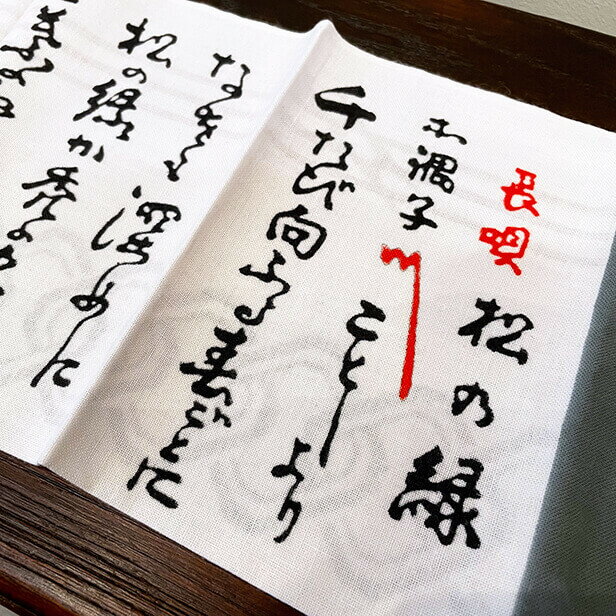 長唄 松の緑
本調子 〽 ことしより
千たび向ふる春ごとに
なをも深めに
松の緑か禿の